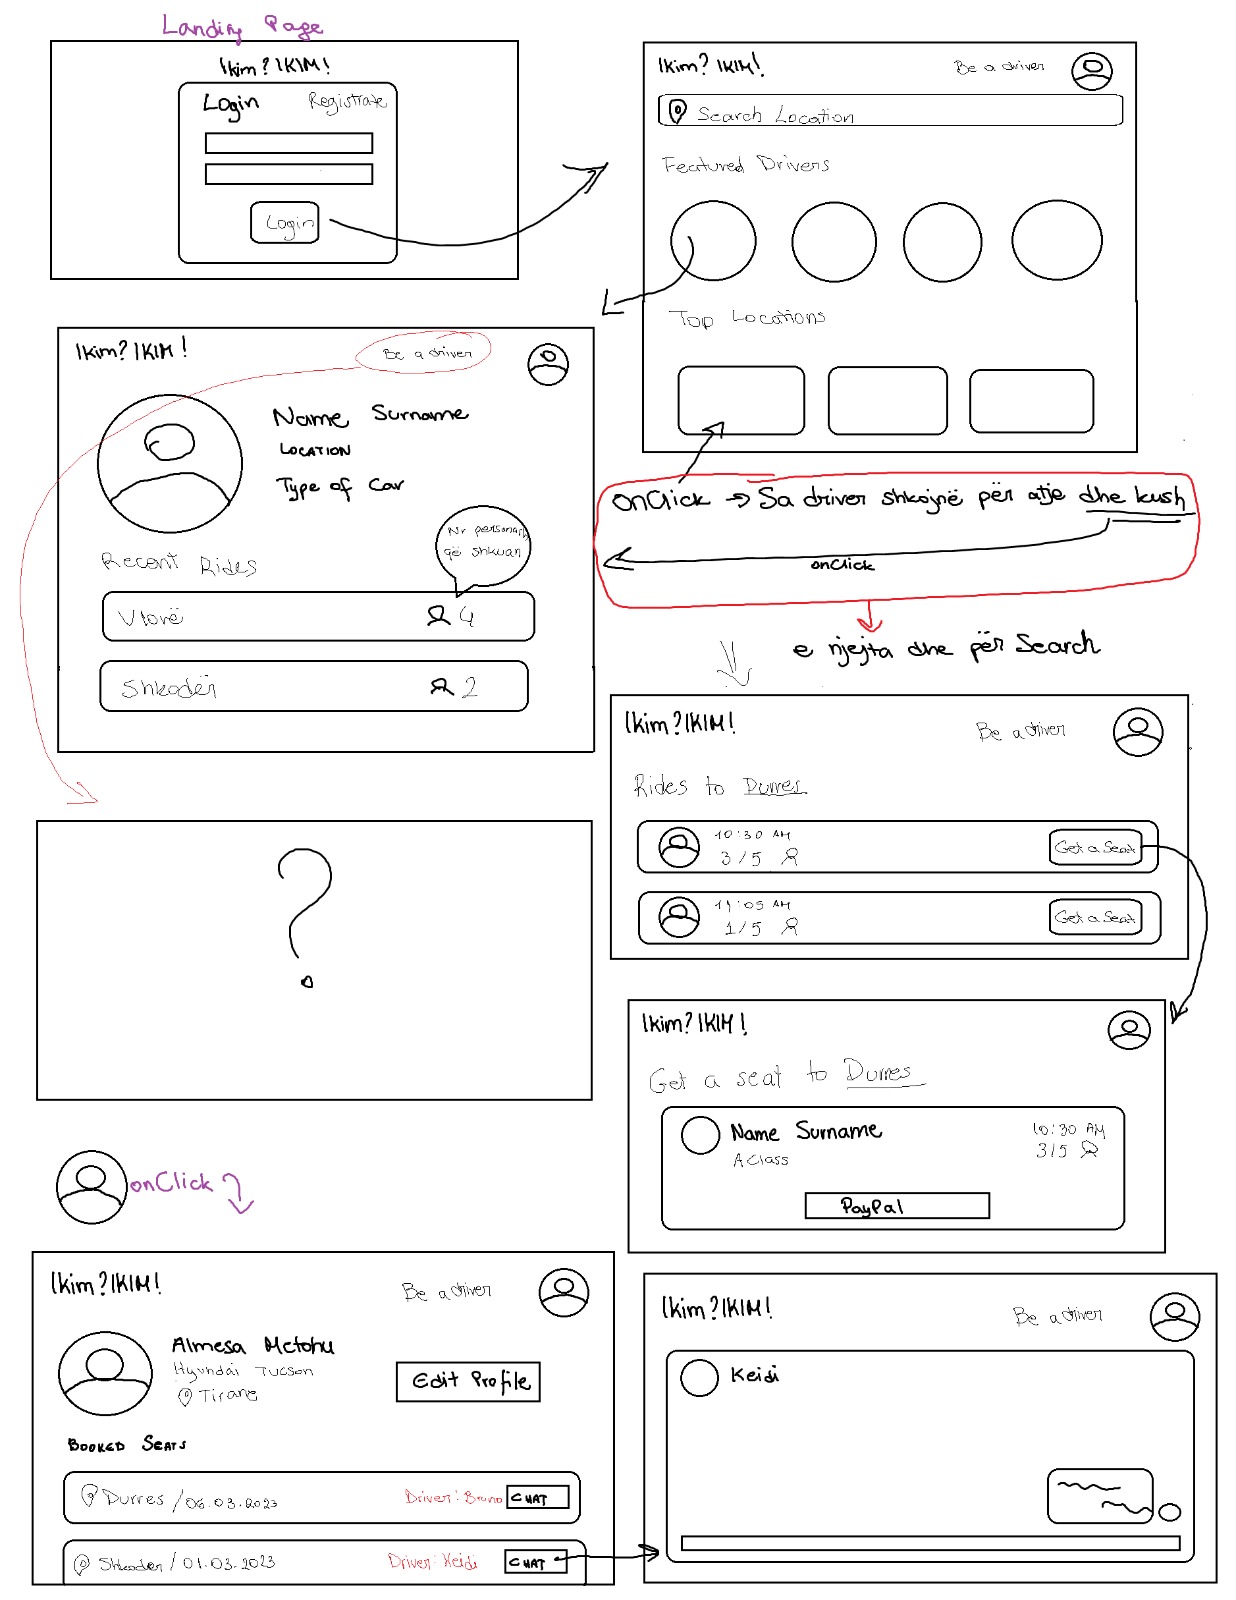 Landing Page
Ikim? IKIM!
Login Registrate
Login
Ikim? IKIM!
Be a driver
Search Location
Featured Drivers
Top Locations
Ikim? IKIM!
Be a driver
Name Surname
LOCATION
Type of Car
Nr personash
që shkuan
Recent Rides
Vlorë 4
Shkodër 2
onClick → Sa driver shkojnë për atje dhe kush
onClick
e njejta dhe për Search
Ikim? IKIM!
Be a driver
Rides to Durres
10:30 AM
3/5
Get a Seat
11:05 AM
1/5
Get a Seat
?
Ikim? IKIM!
Get a seat to Durres
Name Surname
A Class
10:30 AM
3/5
PayPal
onClick
Ikim? IKIM!
Be a driver
Almesa Metohu
Hyundai Tucson
Tirane
Edit Profile
BOOKED SEATS
Durres / 06.03.2023 Driver: Bruno CHAT
Shkoder / 01.03.2023 Driver: Keidi CHAT
Ikim? IKIM!
Be a driver
Keidi